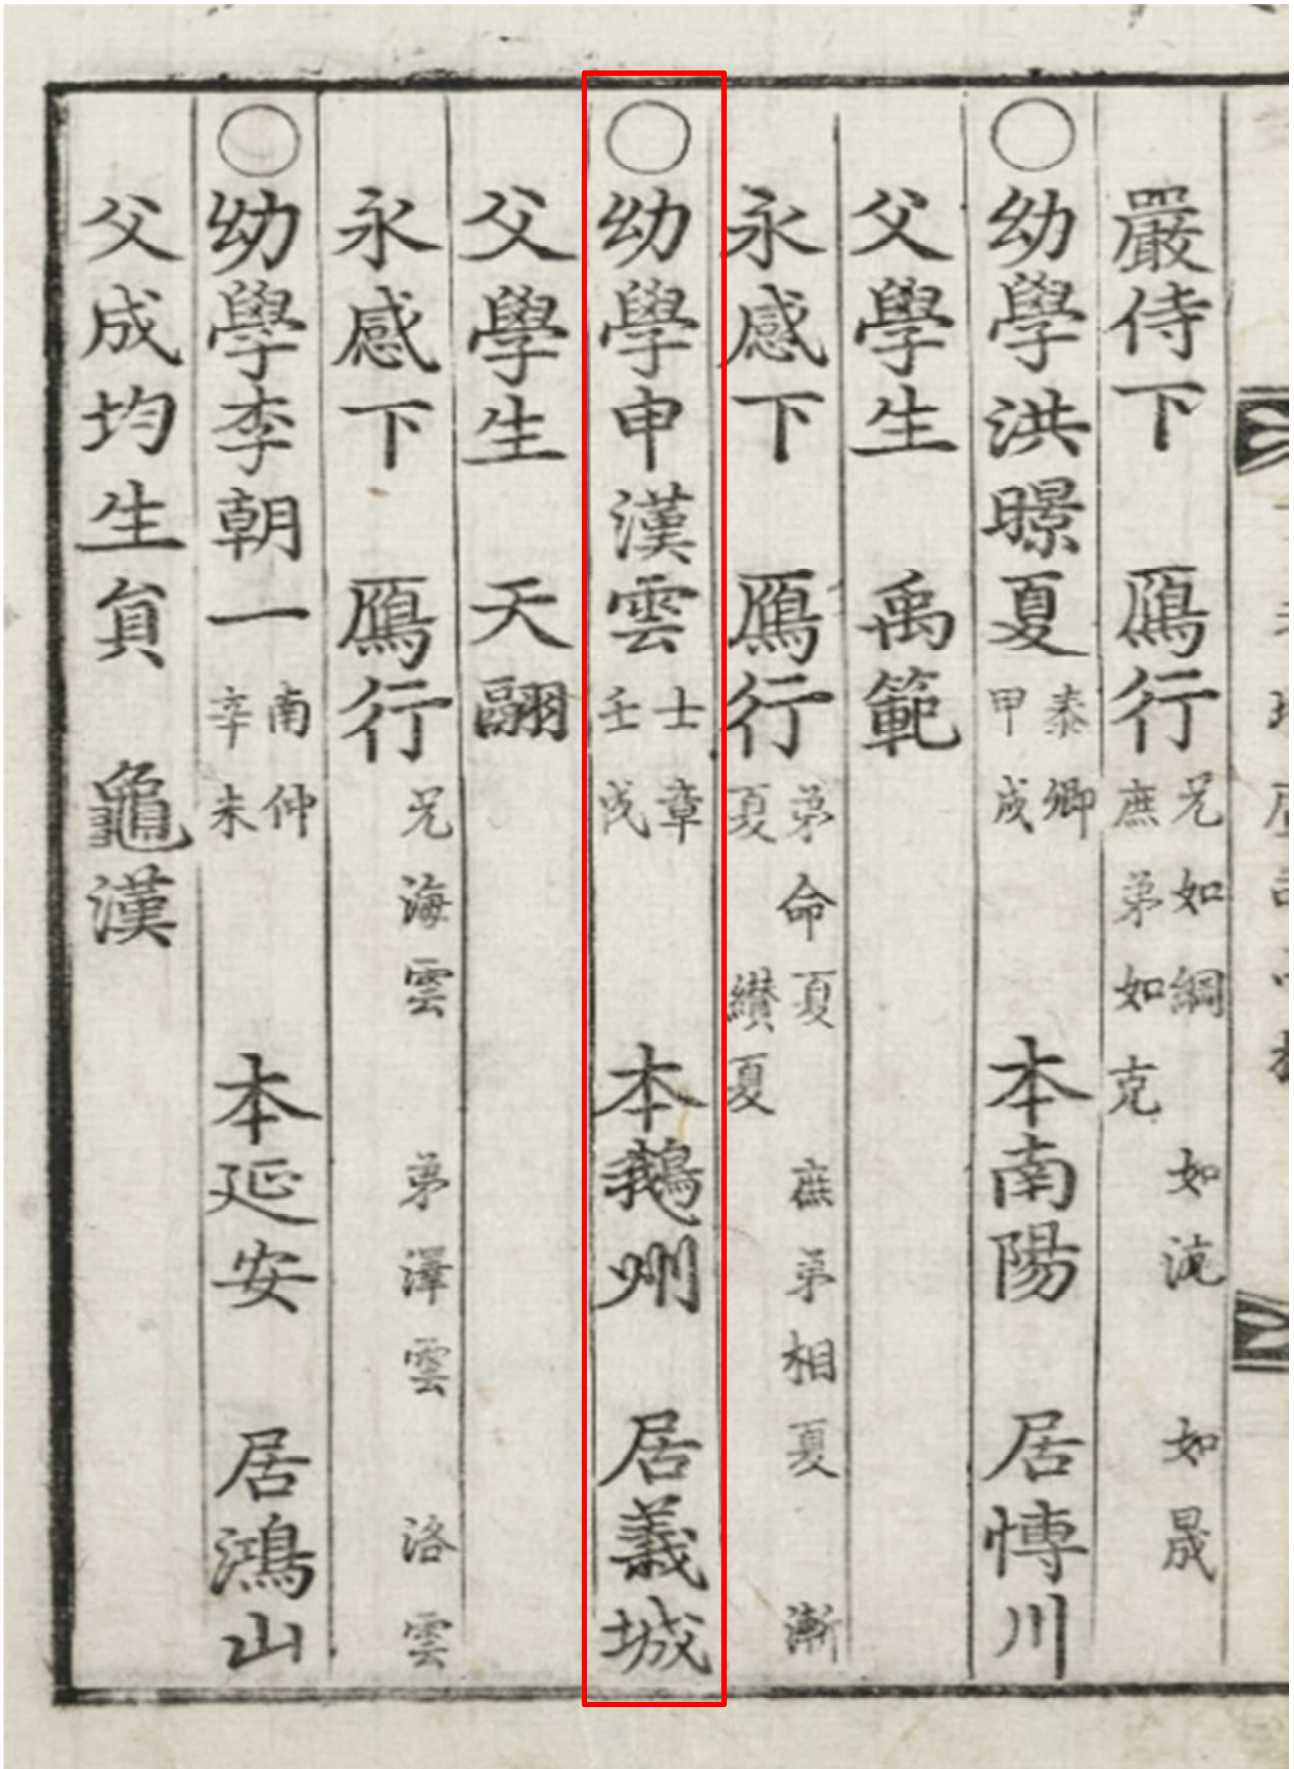 嚴侍下 鴈行 兄如綱 如沇 如晟 庶弟如克
○幼學洪暻夏 泰卿 甲戌 本南陽 居博川
父學生 禹範
永感下 鴈行 弟命夏 庶弟相夏 漸夏 纘夏
○幼學申漢雲 士章 壬戌 本鵝州 居義城
父學生 天翮
永感下 鴈行 兄海雲 弟澤雲 洛雲
○幼學李朝一 南仲 辛未 本延安 居鴻山
父成均生員 龜漢